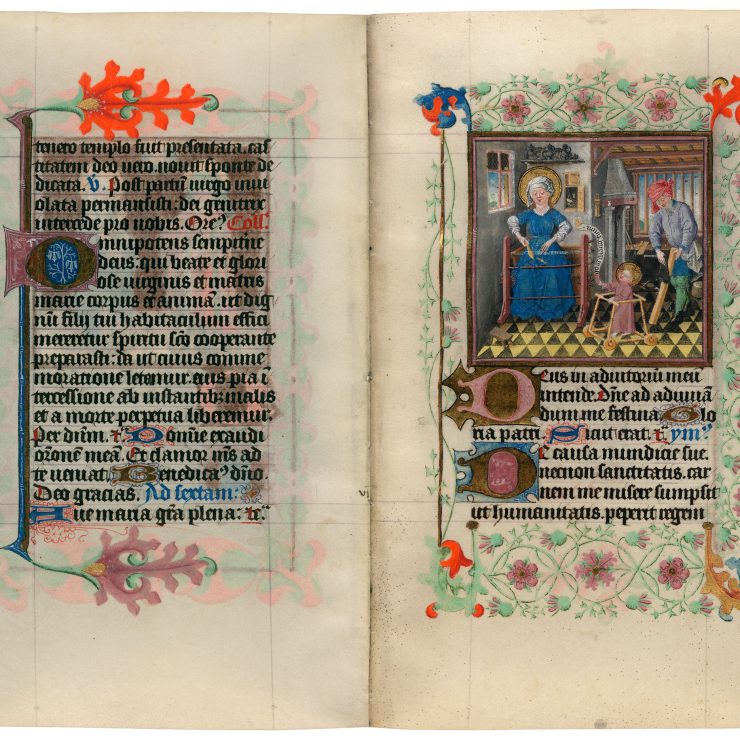 tenero templo fuit presentata. cas
titatem deo vero. novit sponte de
dicata. v. Post partū virgo invi
olata permansisti: dei genitrix
intercede pro nobis. Ore? Coll.
Omnipotens sempitne
deus: qui beate et glori
ose virginis et matris
marie corpus et animā. ut dig
nū filij tui habitaculum effici
mereretur spiritu scō cooperante
preparasti: da ut cuius comme
moratione letamur. eius pia ī
tercessione ab instantibus malis
et a morte perpetua liberemur.
Per dūm. t. Domine exaudi
orōnem meā. Et clamor m̄s ad
te veniat. Benedicaꝰ dn̄o.
Deo gracias. Ad sextam:
Ave maria grā plena: te.
vi
Deus in adiutoriūm meū
intende. Dn̄e ad adiuvā
dum me festina. Glo
ria patri. Sicut erat. t ymꝰ
O causa mundicie sue
necnon sanctitatis. car
nem me misere sumpsit
ut humanitatis. peperit regem